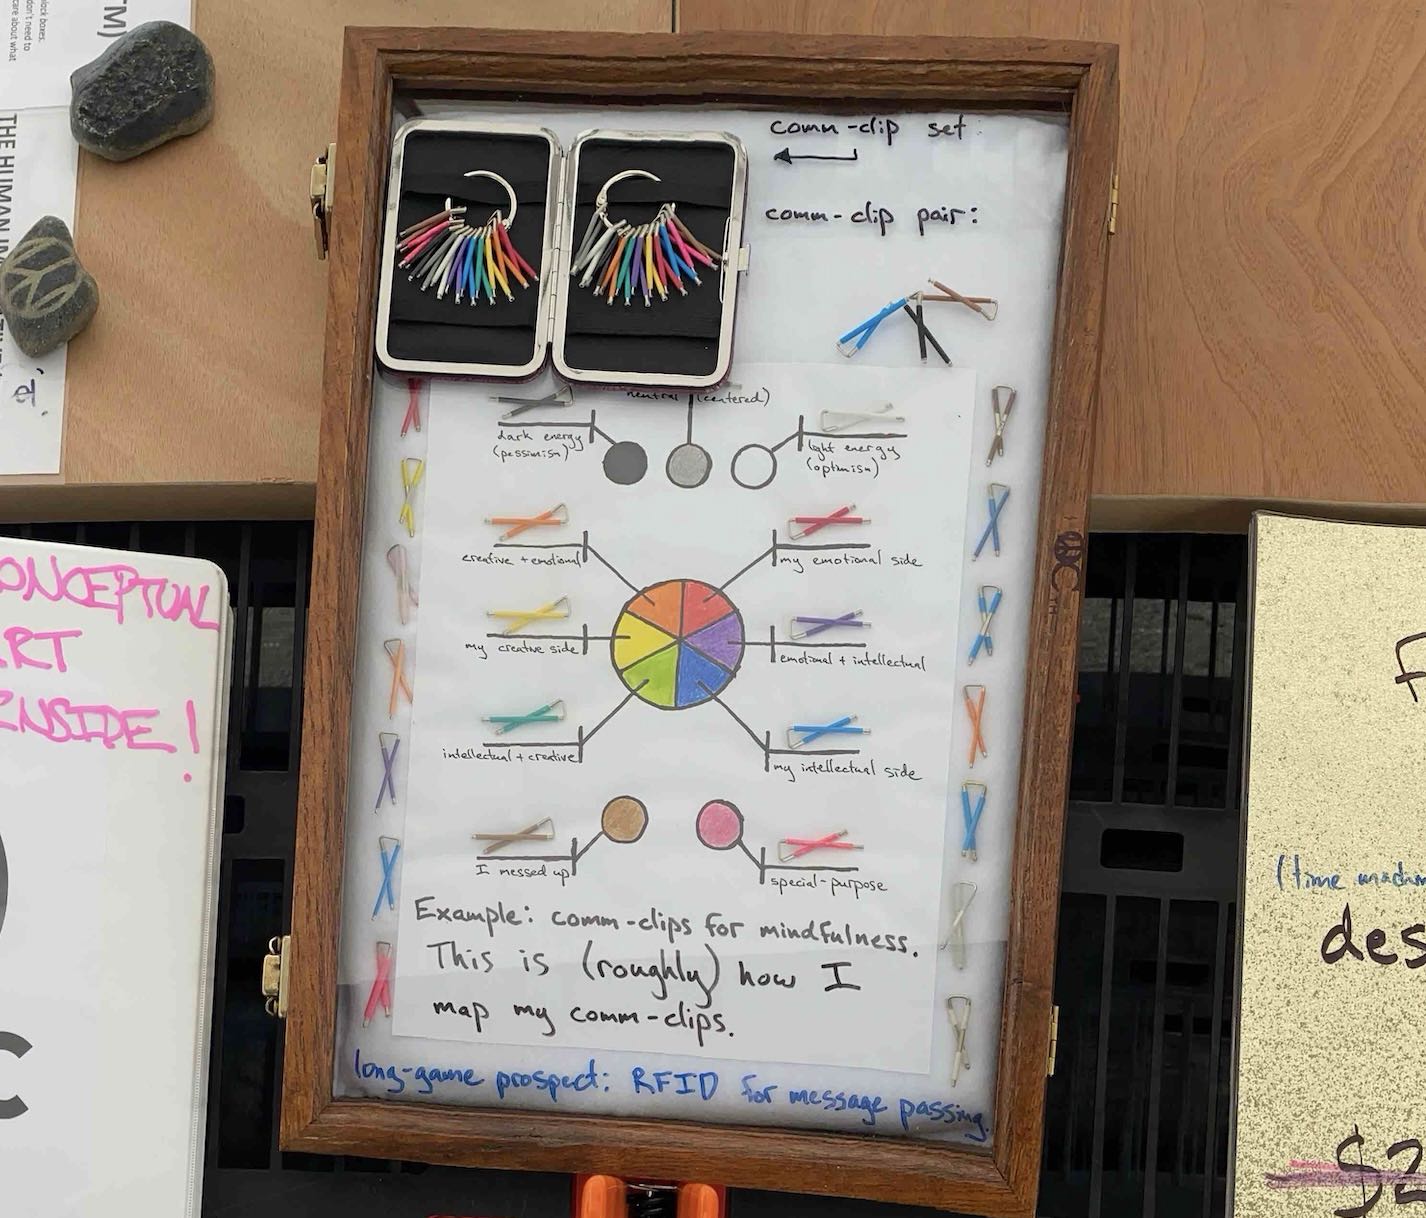 TM)
lock boxes.
don't need to
care about what
THE HUMAN
el.
comm-clip set:
comm-clip pair:
neutral (centered)
dark energy
(pessimism)
light energy
(optimism)
creative + emotional
my emotional side
my creative side
emotional + intellectual
intellectual + creative
my intellectual side
I messed up
special-purpose
Example: comm-clips for mindfulness.
This is (roughly) how I
map my comm-clips.
long-game prospect: RFID for message passing.
CONCEPTUAL
ART
INSIDE!
C
F
(time machin
des
$2